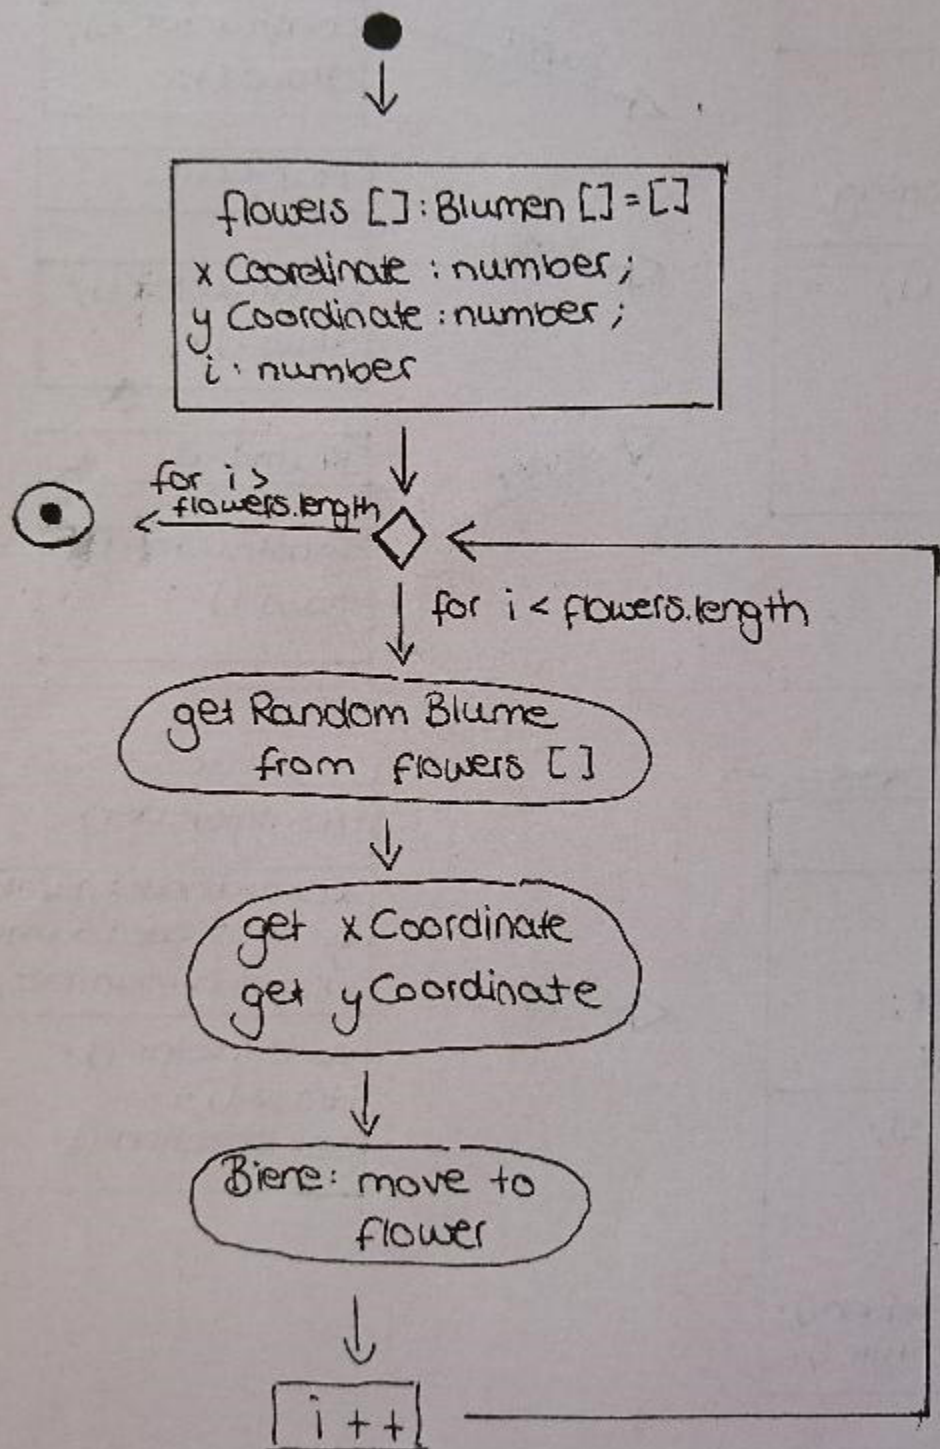 flowers []: Blumen [] = []
x Coordinate : number;
y Coordinate : number;
i : number
for i >
flowers.length
for i < flowers.length
get Random Blume
from flowers []
get xCoordinate
get yCoordinate
Biene: move to
flower
i ++